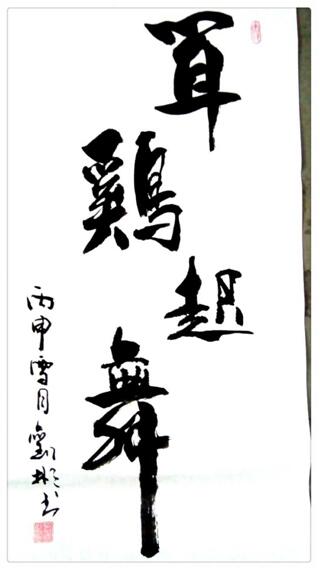 聞鷄起舞
丙申雪月劉彬书